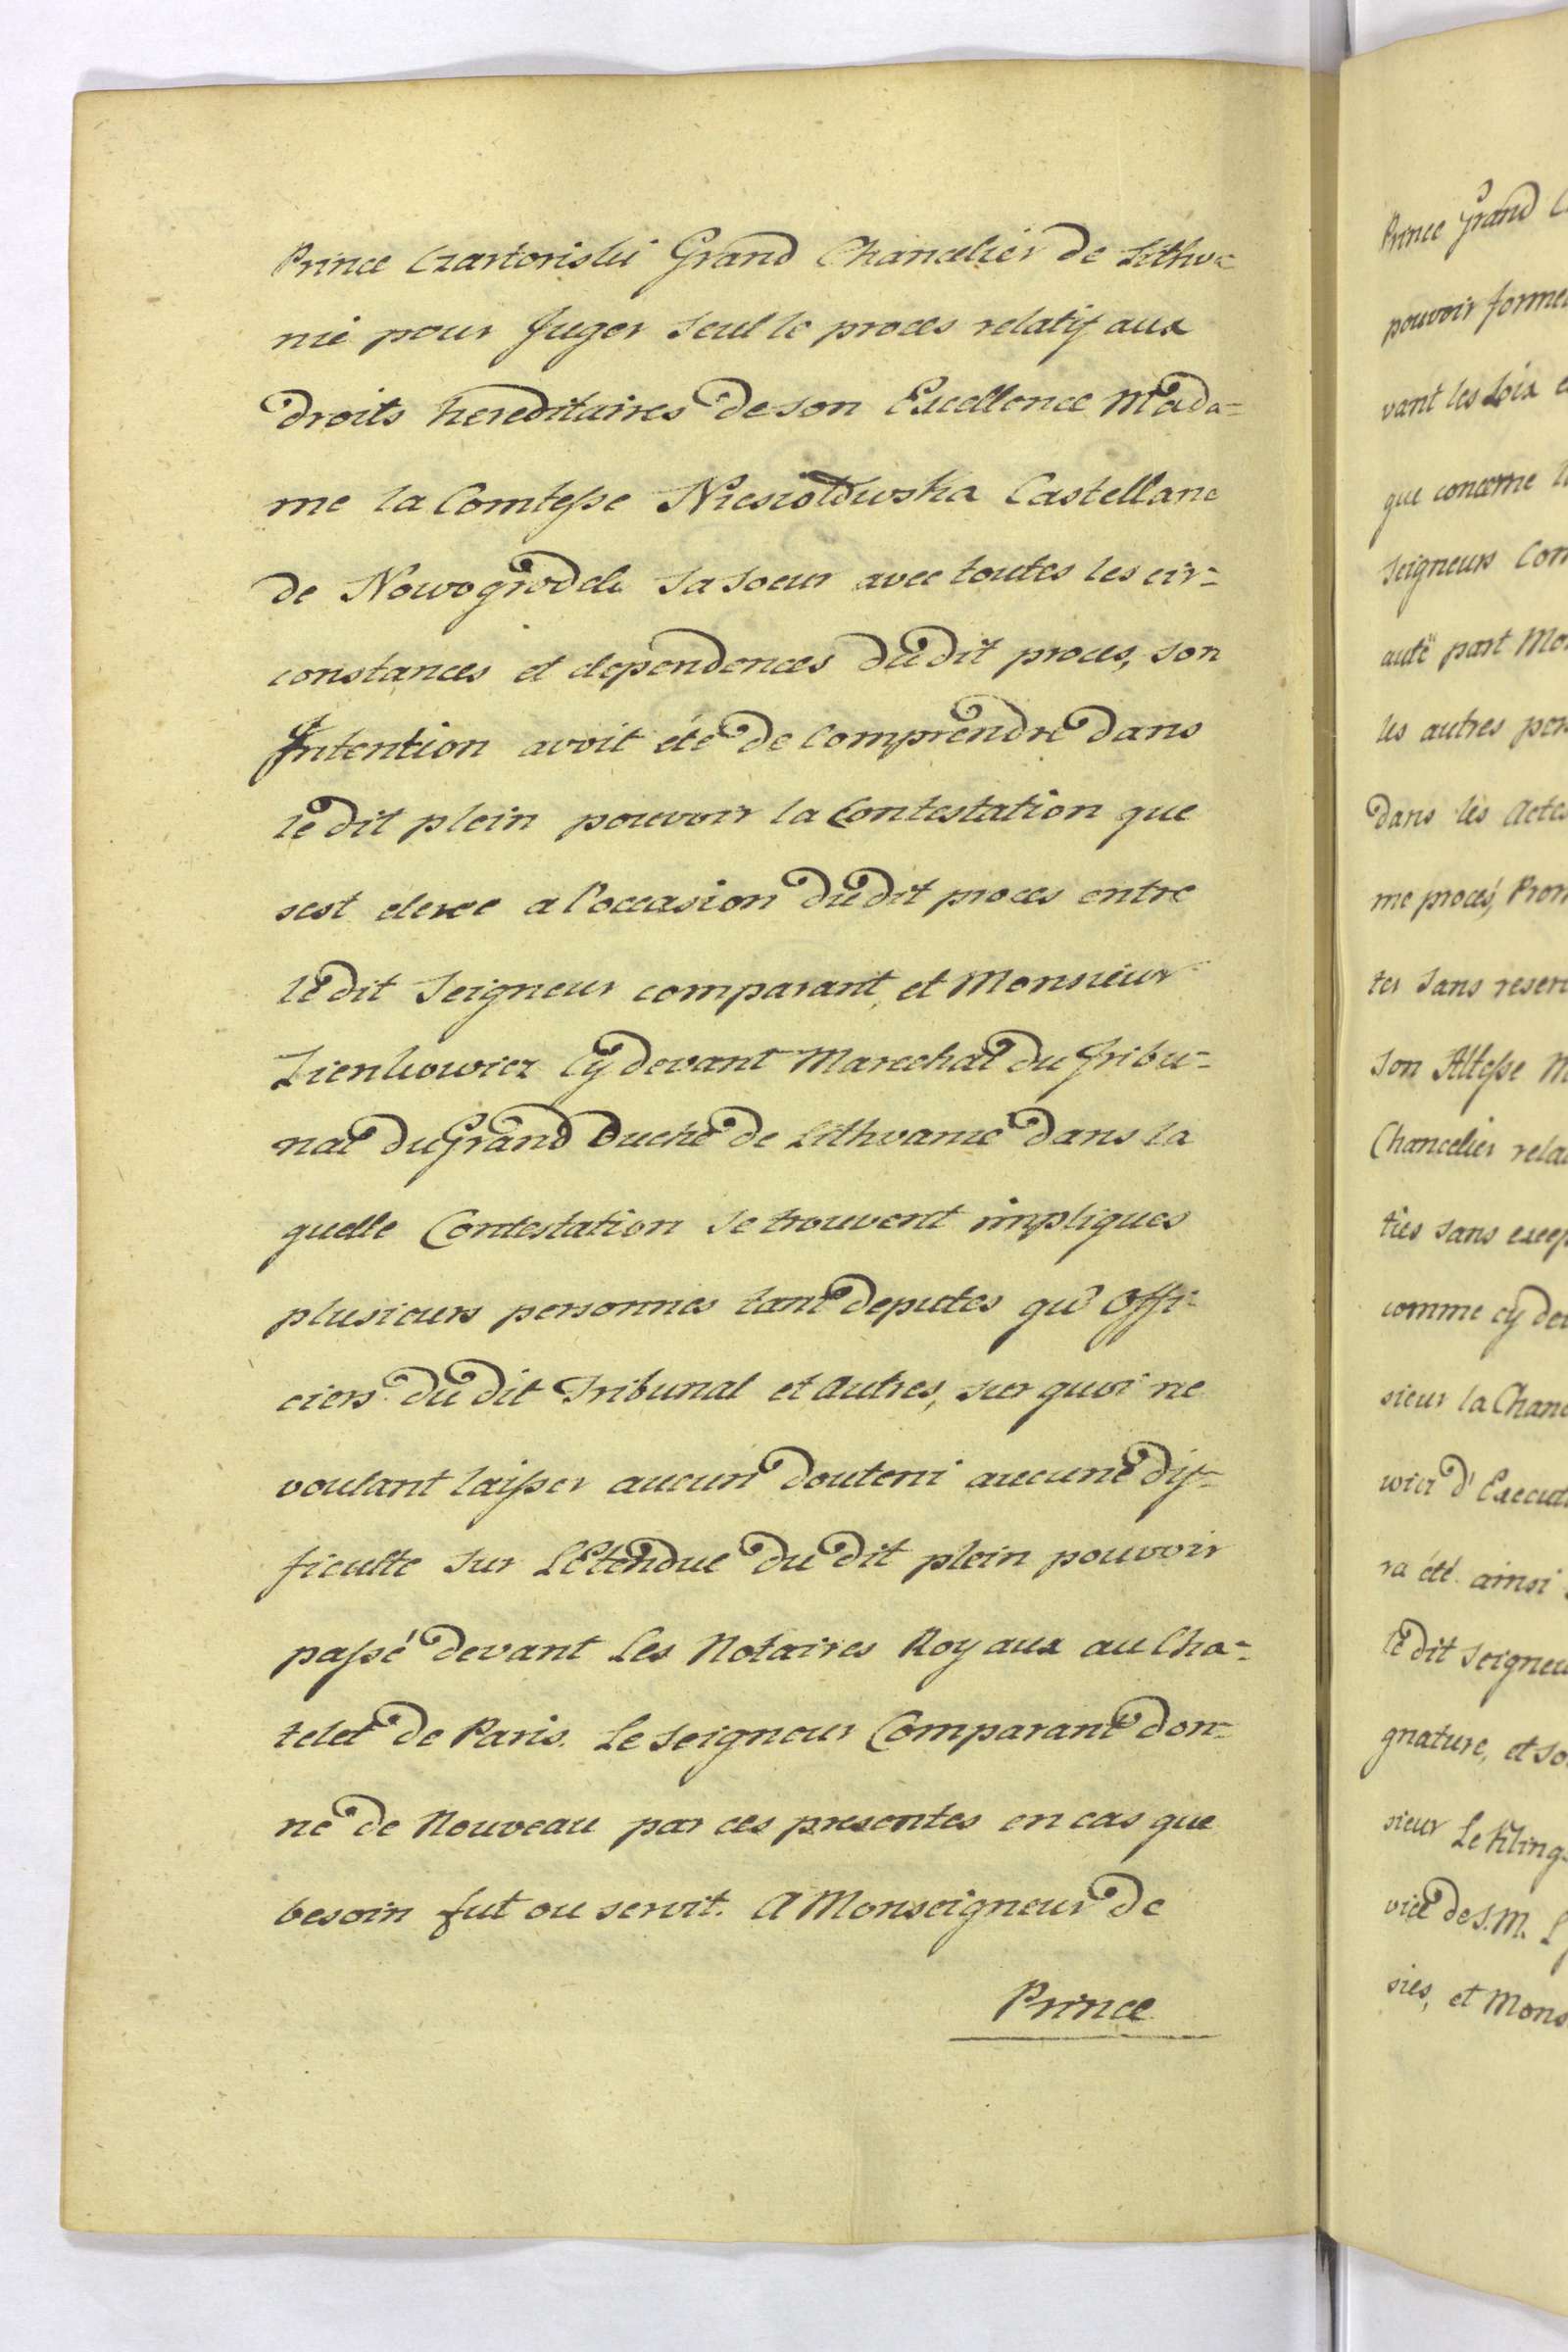 Prince Czartoriski Grand Chancelier de Lithva=
nie pour Juger seul le proces relatif aux
droits hereditaires de son Excellence Mada=
me la Comtesse Niesiolowska Castellane
de Nowogrodek sa soeur avec toutes les cir=
constances et dependences du dit proces, son
Intention avoit eté de comprendre dans
le dit plein pouvoir la Contestation que
sest elevee a l'occasion du dit proces entre
le dit Seigneur comparant, et Monsieur
Zienkowicz cy devant Marechal du Tribu=
nal du Grand Duché de Lithvanie dans la
quelle Contestation se trouvent impliques
plusieurs personnes tant deputes qu'Offi=
ciers du dit Tribunal et autres, sur quoi ne
voulant laisser aucun doute ni aucune dif=
ficulte sur L'Etendue du dit plein pouvoir
passé devant Les Notaires Royaux au Cha=
telet de Paris. Le Seigneur Comparant don=
ne de Nouveau par ces presentes en cas que
besoin fut ou seroit. A Monseigneur de
Prince
Prince Grand
pouvoir
vant les Loix
que concerne
Seigneurs
part
les autres
dans les Actes
me procés,
ter sans
Son Altesse
Chancelier
ties sans
comme cy
sieur la
d'
ra été ainsi
le dit
gnature, et
sieur Le
vice de S. M.
sies, et